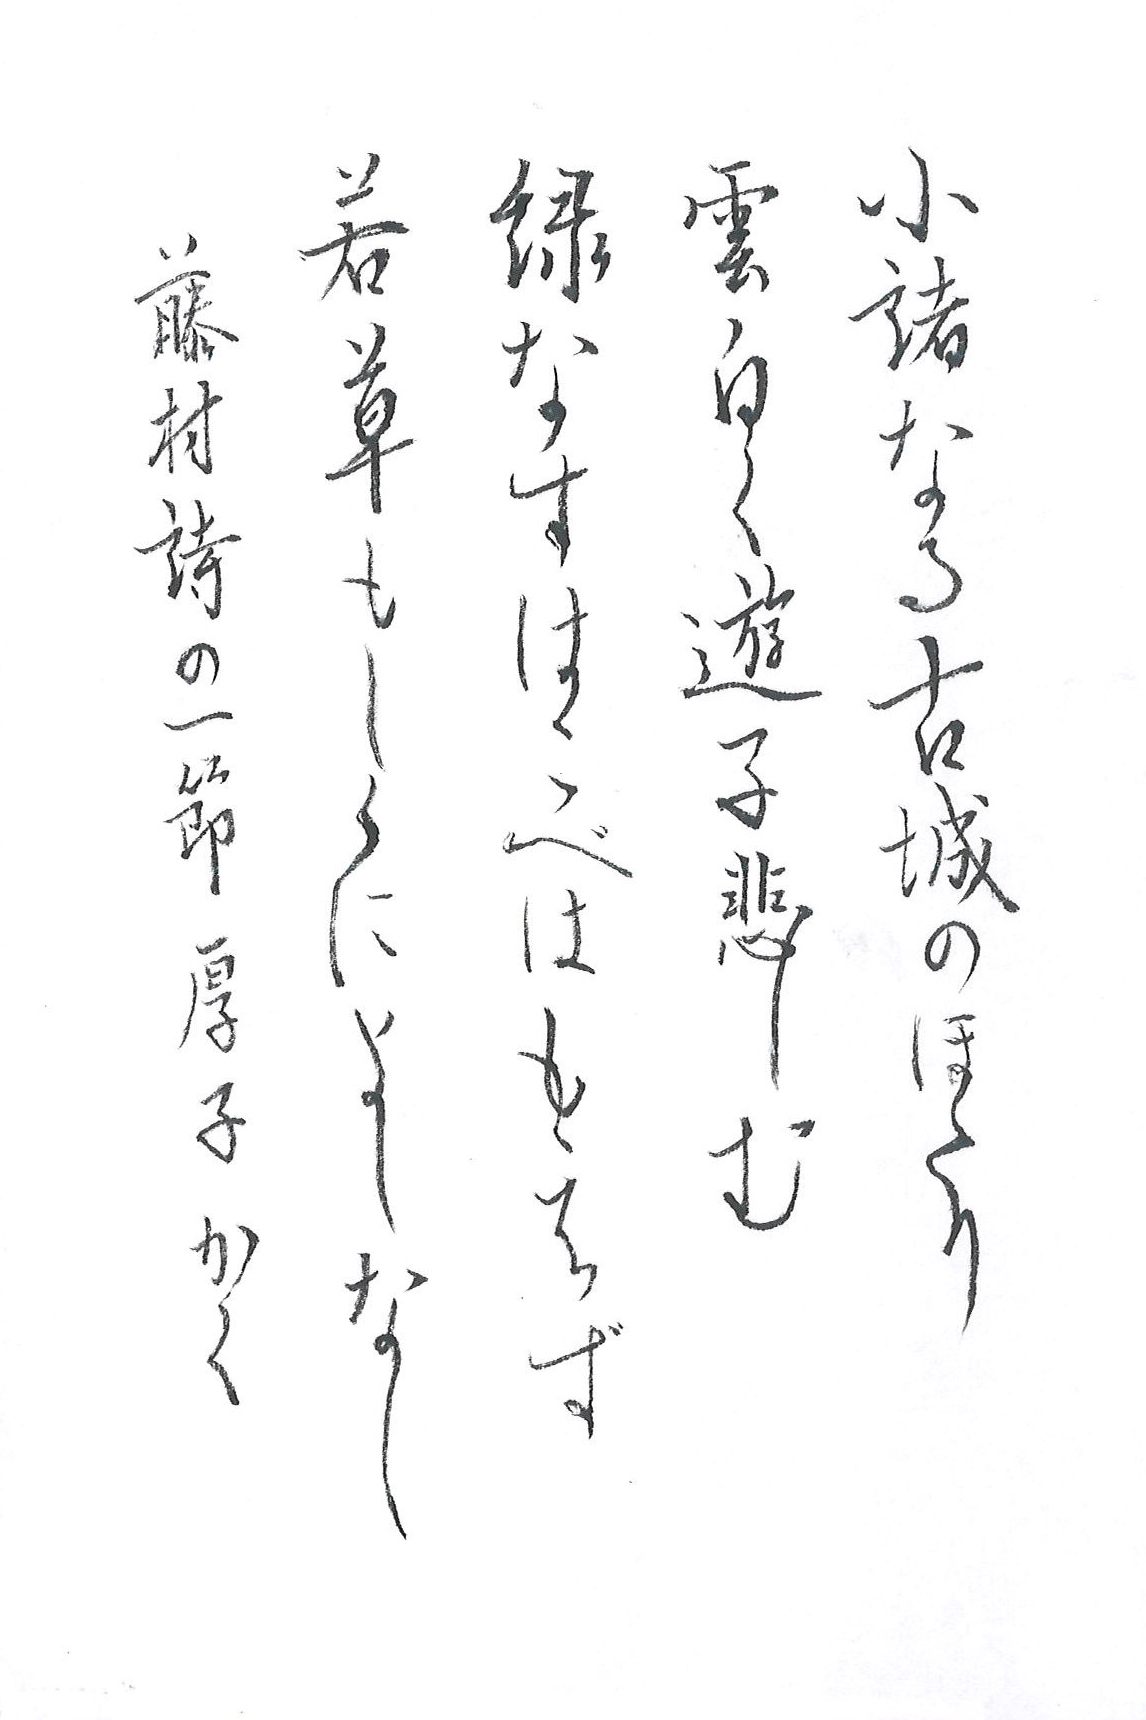 小諸なる古城のほとり
雲白く遊子悲しむ
緑なすはこべはもえず
若草もしくによしなし
藤村詩の一節 厚子かく